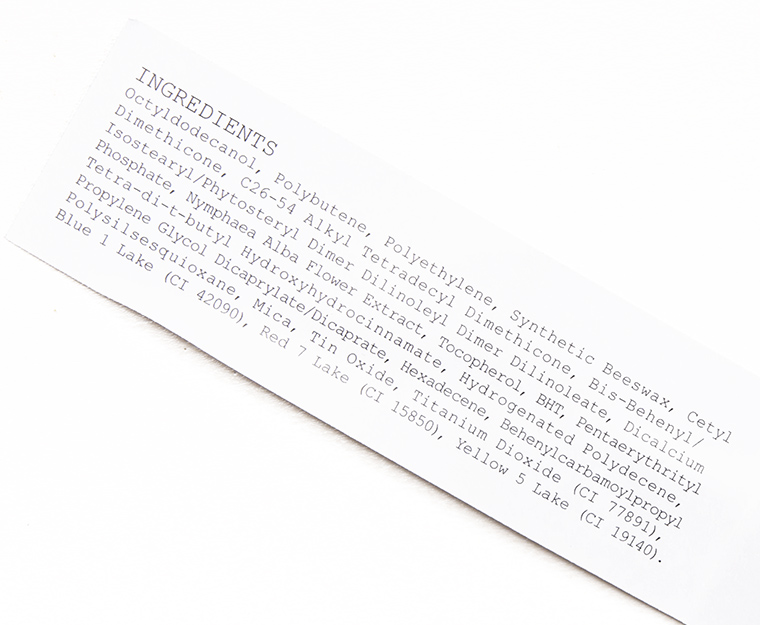 INGREDIENTS
Octyldodecanol, Polybutene, Polyethylene, Synthetic Beeswax, Cetyl
Dimethicone, C26-54 Alkyl Tetradecyl Dimethicone, Bis-Behenyl/
Isostearyl/Phytosteryl Dimer Dilinoleyl Dimer Dilinoleate, Dicalcium
Phosphate, Nymphaea Alba Flower Extract, Tocopherol, BHT, Pentaerythrityl
Tetra-di-t-butyl Hydroxyhydrocinnamate, Hydrogenated Polydecene,
Propylene Glycol Dicaprylate/Dicaprate, Hexadecene, Behenylcarbamoylpropyl
Polysilsesquioxane, Mica, Tin Oxide, Titanium Dioxide (CI 77891),
Blue 1 Lake (CI 42090), Red 7 Lake (CI 15850), Yellow 5 Lake (CI 19140).